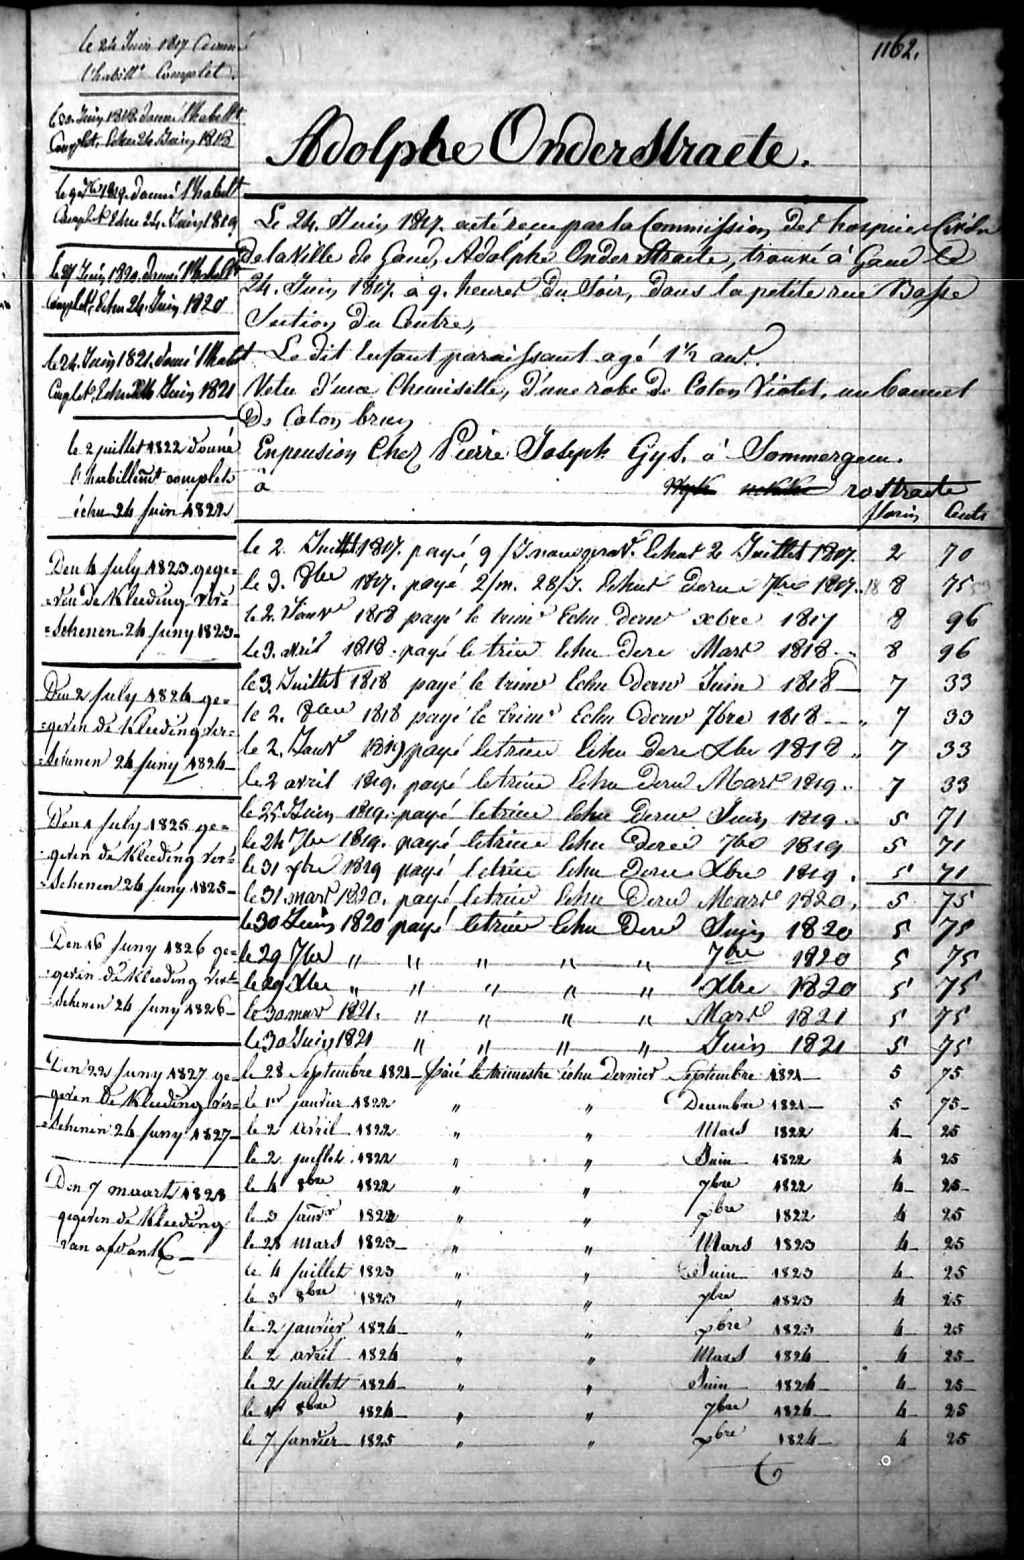 1162.
le 24 Juin 1817 donné
l'habillt Complet.
le 20 Juin 1818 donné l'habillt
Complet, Echu 24 Juin 1818
le 9 1819 donné l'habillt
Complet Echu 24 Juin 1819
le 27 Juin 1820 donné l'habillt
Complet, Echu 24 Juin 1820
le 24 Juin 1821 donné l'habilt
Complet, Echu 24 Juin 1821
le 2 juillet 1822 donné
l'habillemt complet
échu 24 juin 1822
Den 4 July 1823 gege-
-ven de Kleeding vers-
-schenen 24 Juny 1823-
Den 2 July 1824 ge-
-geven de Kleeding ver-
-schenen 24 Juny 1824-
Den 1 July 1825 ge-
-geven de Kleeding vers-
-schenen 24 Juny 1825-
Den 16 Juny 1826 ge-
-geven de Kleeding vers-
-schenen 24 Juny 1826-
Den 22 Juny 1827 ge-
-geven de Kleeding vers-
-schenen 24 Juny 1827-
Den 7 maart 1828
gegeven de Kleeding
van
Adolphe Onderstraete.
Le 24 Juin 1817. a été recu par la Commission des hospices Civils
De la Ville de Gand, Adolphe Onderstraete, trouvé à Gand le
24. Juin 1817. à 9. heures du Soir, dans la petite rue Basse
Section du Centre,
Le dit Enfant paraissant agé 1½ ans.
Vetu d'une Chemisette, d'une robe de Coton Violet, un bonnet
De Coton brun
En pension Chez Pierre Joseph Gys. à Sommergem.
à rostraete
florins Cents
le 2 Juillet 1817. payé 9 /J Echus 2 Juillet 1817. 2 70
le 3. 8bre 1817. payé 2/m. 28/J. Echus derner 7bre 1817. 8 75
le 2. Janvr 1818 payé le trime Echu dernr xbre 1817 8 96
le 3. avril 1818. payé le trim Echu derr Mars 1818 8 96
le 3. Juillet 1818 payé le trime Echu dernr Juin 1818 7 33
le 2. 8bre 1818 payé le trime Echu dernr 7bre 1818 7 33
le 2. Janvr 1819 payé le trim Echu derr Xbre 1818 7 33
le 2 avril 1819. payé le trim Echu dernr Mars 1819. 7 33
le 25 Juin 1819. payé le trim Echu dernr Juin 1819 5 71
le 24 7bre 1819. payé le trim Echu derr 7bre 1819 5 71
le 31 xbre 1819 payé le trim Echu dernr Xbre 1819. 5 71
le 31 mars 1820. payé le trim Echu dernr Mars 1820. 5 75
le 30 Juin 1820 payé le trim Echu derr Juin 1820 5 75
le 29 7bre " " " " " 7bre 1820 5 75
le 29 Xbre " " " " " Xbre 1820 5 75
le 30 mars 1821. " " " " Mars 1821 5 75
le 30 Juin 1821 " " " " Juin 1821 5 75
le 28 Septembre 1821 - Paié le trimestre échu dernier Septembre 1821 - 5 75
le 1er janvier 1822 " " Decembre 1821 - 5 75-
le 2 avril 1822 " " Mars 1822 4- 25
le 2 juillet 1822 " " Juin 1822 4 25
le 4 8bre 1822 " " 7bre 1822 4- 25-
le 3 janvr 1822 " " xbre 1822 4 25
le 28 mars 1823- " " Mars 1823 4- 25
le 4 juillet 1823 " " Juin 1823 4- 25
le 3 8bre 1823 " " 7bre 1823 4 25
le 2 janvier 1824- " " xbre 1823 4- 25
le 2 avril 1824 " " Mars 1824 4 25-
le 2 juillet 1824- " " Juin 1824- 4- 25-
le 1er 8bre 1824- " " 7bre 1824- 4- 25
le 7 janvier 1825 " " xbre 1824- 4 25